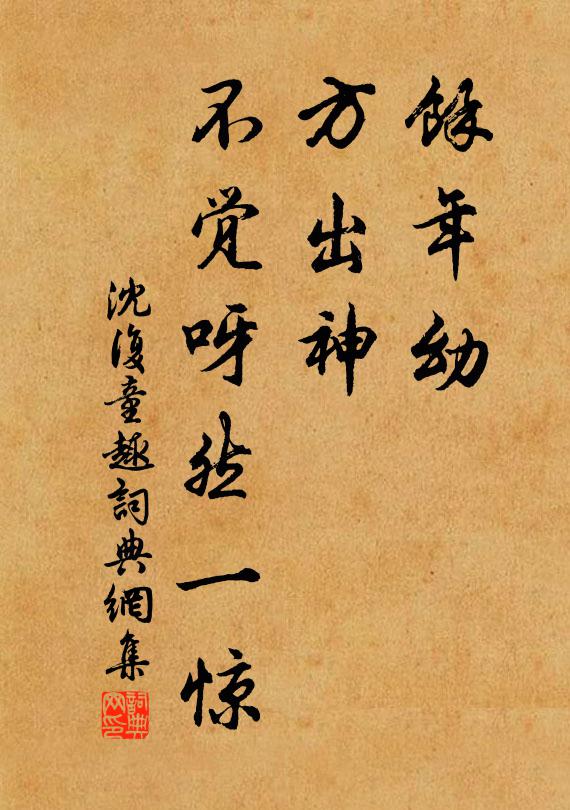 餘年幼
方出神
不觉呀然一惊
沈復童趣詞典網集
詞典网印